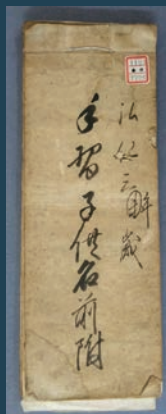 弘化三丙午歳
手習子供名前附